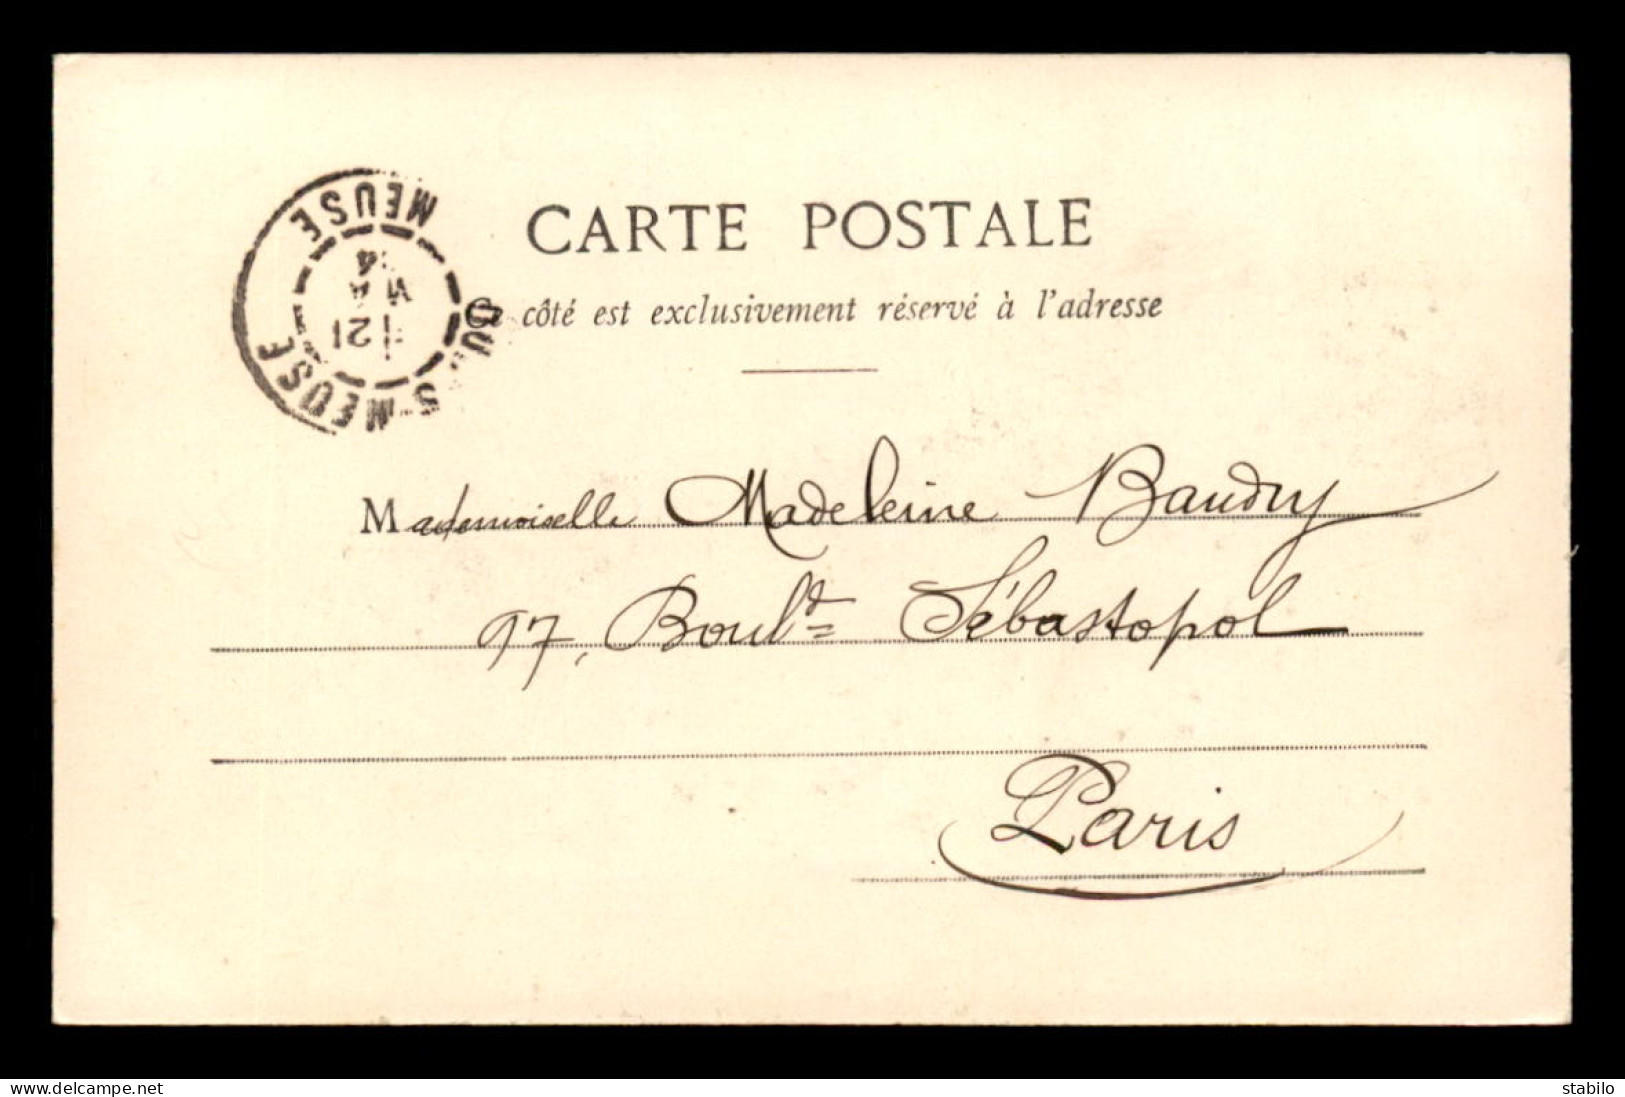 CARTE POSTALE
Ce côté est exclusivement réservé à l'adresse
MEUSE
21
4
MEUSE
Mademoiselle Madeleine Baudry
97, Boul.d Sébastopol
Paris
www.delcampe.net
stabilo